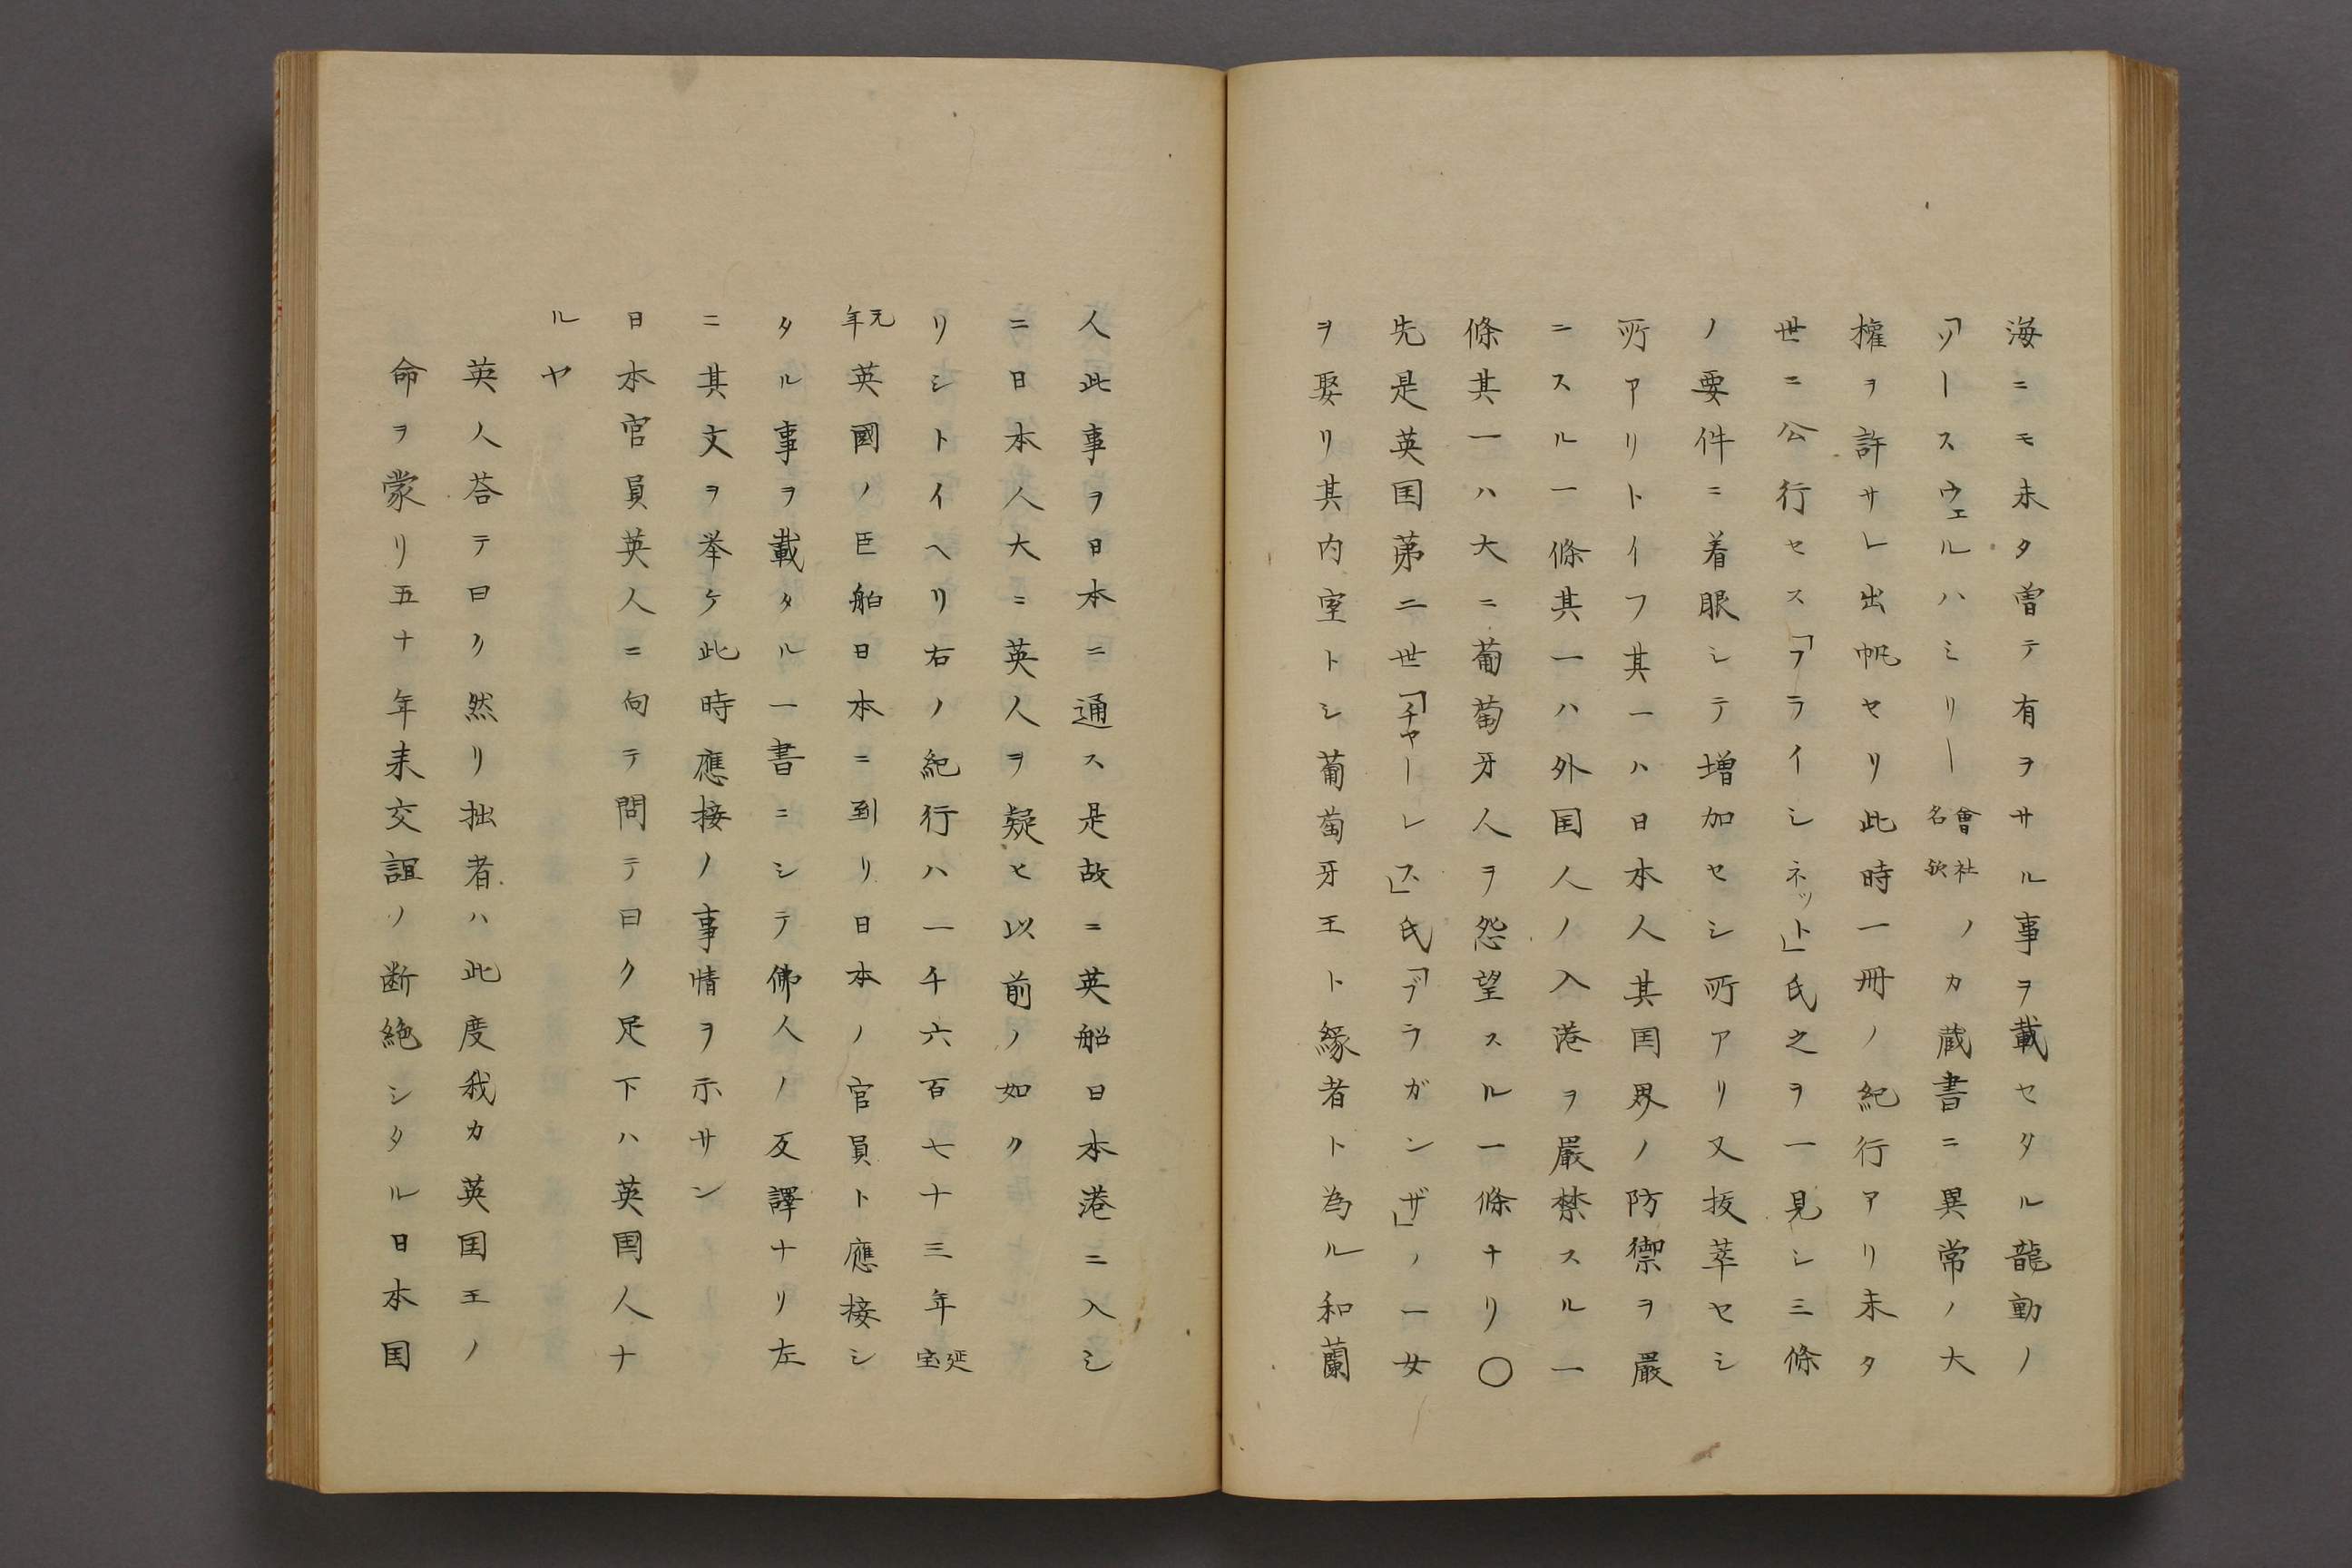 海ニモ未タ曽テ有ヲサル事ヲ載セタル龍動ノ
「ソースウェルハミリー會社名欤ノカ蔵書ニ異常ノ大
權ヲ許サレ出帆セリ此時一冊ノ紀行アリ未タ
世ニ公行セス「フライシネット」氏之ヲ一見シ三條
ノ要件ニ着眼シテ増加セシ所アリ又抜萃セシ
所アリトイフ其一ハ日本人其国界ノ防禦ヲ嚴
ニスル一條其一ハ外国人ノ入港ヲ嚴禁スル一
條其一ハ大ニ葡萄牙人ヲ怨望スル一條ナリ〇
先是英国第二世「チャーレス」氏「ブラガンザ」ノ一女
ヲ娶リ其内室トシ葡萄牙王ト縁者ト為ル和蘭
人此事ヲ日本ニ通ス是故ニ英船日本港ニ入シ
ニ日本人大ニ英人ヲ疑ヒ以前ノ如ク
リシトイヘリ右ノ紀行ハ一千六百七十三年延宝
元年英國ノ巨舶日本ニ到リ日本ノ官員ト應接シ
タル事ヲ載タル一書ニシテ佛人ノ反譯ナリ左
ニ其文ヲ挙ケ此時應接ノ事情ヲ示サン
日本官員英人ニ向テ問テ曰ク足下ハ英国人ナ
ルヤ
英人荅テ曰ク然リ拙者ハ此度我カ英国王ノ
命ヲ蒙リ五十年来交誼ノ断絶シタル日本国